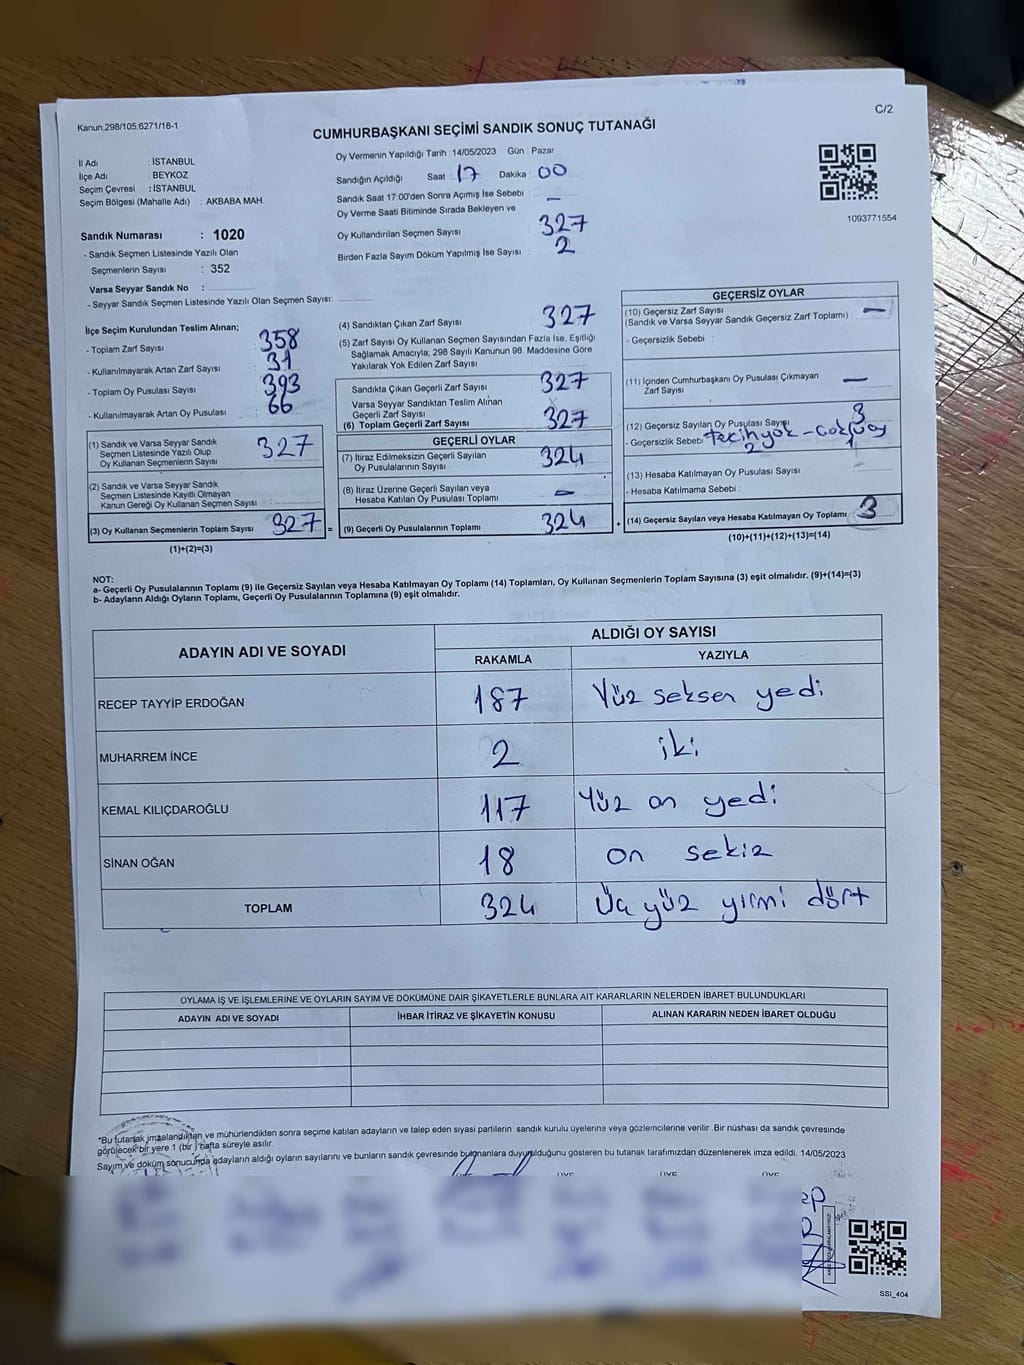 C/2
Kanun.298/105,6271/18-1
CUMHURBAŞKANI SEÇİMİ SANDIK SONUÇ TUTANAĞI
İl Adı : İSTANBUL
İlçe Adı : BEYKOZ
Seçim Çevresi : İSTANBUL
Seçim Bölgesi (Mahalle Adı) : AKBABA MAH.
Oy Vermenin Yapıldığı Tarih : 14/05/2023 Gün : Pazar
Sandığın Açıldığı Saat : 17 Dakika : 00
Sandık Saat 17:00'den Sonra Açımış İse Sebebi : —
Oy Verme Saati Bitiminde Sırada Bekleyen ve
Oy Kullandırılan Seçmen Sayısı 327
Birden Fazla Sayım Döküm Yapılmış İse Sayısı : 2
1093771554
Sandık Numarası : 1020
- Sandık Seçmen Listesinde Yazılı Olan
Seçmenlerin Sayısı : 352
Varsa Seyyar Sandık No :
- Seyyar Sandık Seçmen Listesinde Yazılı Olan Seçmen Sayısı:
İlçe Seçim Kurulundan Teslim Alınan;
- Toplam Zarf Sayısı : 358
- Kullanılmayarak Artan Zarf Sayısı : 31
- Toplam Oy Pusulası Sayısı : 393
- Kullanılmayarak Artan Oy Pusulası : 66
(1) Sandık ve Varsa Seyyar Sandık
Seçmen Listesinde Yazılı Olup
Oy Kullanan Seçmenlerin Sayısı 327
(2) Sandık ve Varsa Seyyar Sandık
Seçmen Listesinde Kayıtlı Olmayan
Kanun Gereği Oy Kullanan Seçmen Sayısı
(3) Oy Kullanan Seçmenlerin Toplam Sayısı 327 =
(1)+(2)=(3)
(4) Sandıktan Çıkan Zarf Sayısı 327
(5) Zarf Sayısı Oy Kullanan Seçmen Sayısından Fazla İse, Eşitliği
Sağlamak Amacıyla; 298 Sayılı Kanunun 98. Maddesine Göre
Yakılarak Yok Edilen Zarf Sayısı :
Sandıkta Çıkan Geçerli Zarf Sayısı 327
Varsa Seyyar Sandıktan Teslim Alınan
Geçerli Zarf Sayısı
(6) Toplam Geçerli Zarf Sayısı 327
GEÇERLİ OYLAR
(7) İtiraz Edilmeksizin Geçerli Sayılan
Oy Pusulalarının Sayısı 324
(8) İtiraz Üzerine Geçerli Sayılan veya
Hesaba Katılan Oy Pusulası Toplamı —
(9) Geçerli Oy Pusulalarının Toplamı 324 +
GEÇERSİZ OYLAR
(10) Geçersiz Zarf Sayısı
(Sandık ve Varsa Seyyar Sandık Geçersiz Zarf Toplamı) —
- Geçersizlik Sebebi :
(11) İçinden Cumhurbaşkanı Oy Pusulası Çıkmayan
Zarf Sayısı —
(12) Geçersiz Sayılan Oy Pusulası Sayısı 3
- Geçersizlik Sebebi
2 1
(13) Hesaba Katılmayan Oy Pusulası Sayısı
- Hesaba Katılmama Sebebi :
(14) Geçersiz Sayılan veya Hesaba Katılmayan Oy Toplamı 3
(10)+(11)+(12)+(13)=(14)
NOT:
a- Geçerli Oy Pusulalarının Toplamı (9) ile Geçersiz Sayılan veya Hesaba Katılmayan Oy Toplamı (14) Toplamları, Oy Kullanan Seçmenlerin Toplam Sayısına (3) eşit olmalıdır. (9)+(14)=(3)
b- Adayların Aldığı Oyların Toplamı, Geçerli Oy Pusulalarının Toplamına (9) eşit olmalıdır.
ADAYIN ADI VE SOYADI
ALDIĞI OY SAYISI
RAKAMLA YAZIYLA
RECEP TAYYİP ERDOĞAN 187 Yüz seksen yedi
MUHARREM İNCE 2 iki
KEMAL KILIÇDAROĞLU 117 Yüz on yedi
SİNAN OĞAN 18 on sekiz
TOPLAM 324 Üç yüz yirmi dört
OYLAMA İŞ VE İŞLEMLERİNE VE OYLARIN SAYIM VE DÖKÜMÜNE DAİR ŞİKAYETLERLE BUNLARA AİT KARARLARIN NELERDEN İBARET BULUNDUKLARI
ADAYIN ADI VE SOYADI İHBAR İTİRAZ VE ŞİKAYETİN KONUSU ALINAN KARARIN NEDEN İBARET OLDUĞU
*Bu tutanak imzalandıktan ve mühürlendikten sonra seçime katılan adayların ve talep eden siyasi partilerin sandık kurulu üyelerine veya gözlemcilerine verilir. Bir nüshası da sandık çevresinde
görülecek bir yere 1 (bir ) hafta süreyle asılır.
Sayım ve döküm sonucunda adayların aldığı oyların sayılarını ve bunların sandık çevresinde bulunanlara duyurulduğunu gösteren bu tutanak tarafımızdan düzenlenerek imza edildi. 14/05/2023
ÜYE ÜYE ÜYE
SSI_404